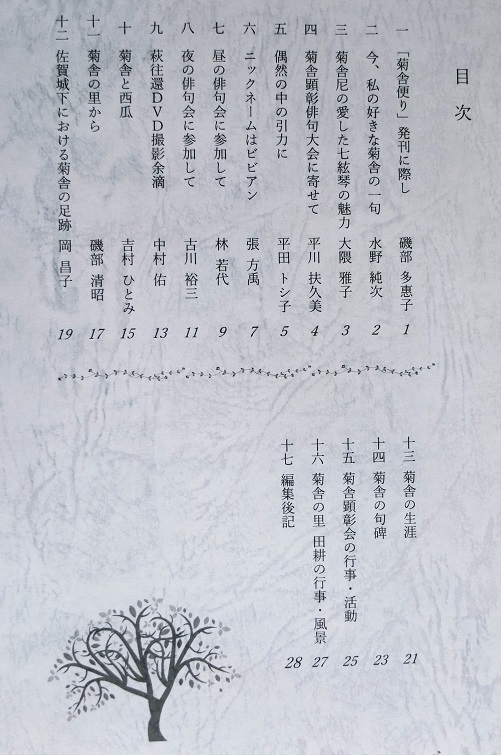 目次
一 「菊舎便り」発刊に際し 磯部 多惠子 1
二 今、私の好きな菊舎の一句 水野 純次 2
三 菊舎尼の愛した七絃琴の魅力 大隈 雅子 3
四 菊舎顕彰俳句大会に寄せて 平川 扶久美 4
五 偶然の中の引力に 平田 トシ子 5
六 ニックネームはビビアン 張 方禹 7
七 昼の俳句会に参加して 林 若代 9
八 夜の俳句会に参加して 古川 裕三 11
九 萩往還DVD撮影余滴 中村 佑 13
十 菊舎と西瓜 吉村 ひとみ 15
十一 菊舎の里から 磯部 清昭 17
十二 佐賀城下における菊舎の足跡 岡 昌子 19
十三 菊舎の生涯 21
十四 菊舎の句碑 23
十五 菊舎顕彰会の行事・活動 25
十六 菊舎の里 田耕の行事・風景 27
十七 編集後記 28